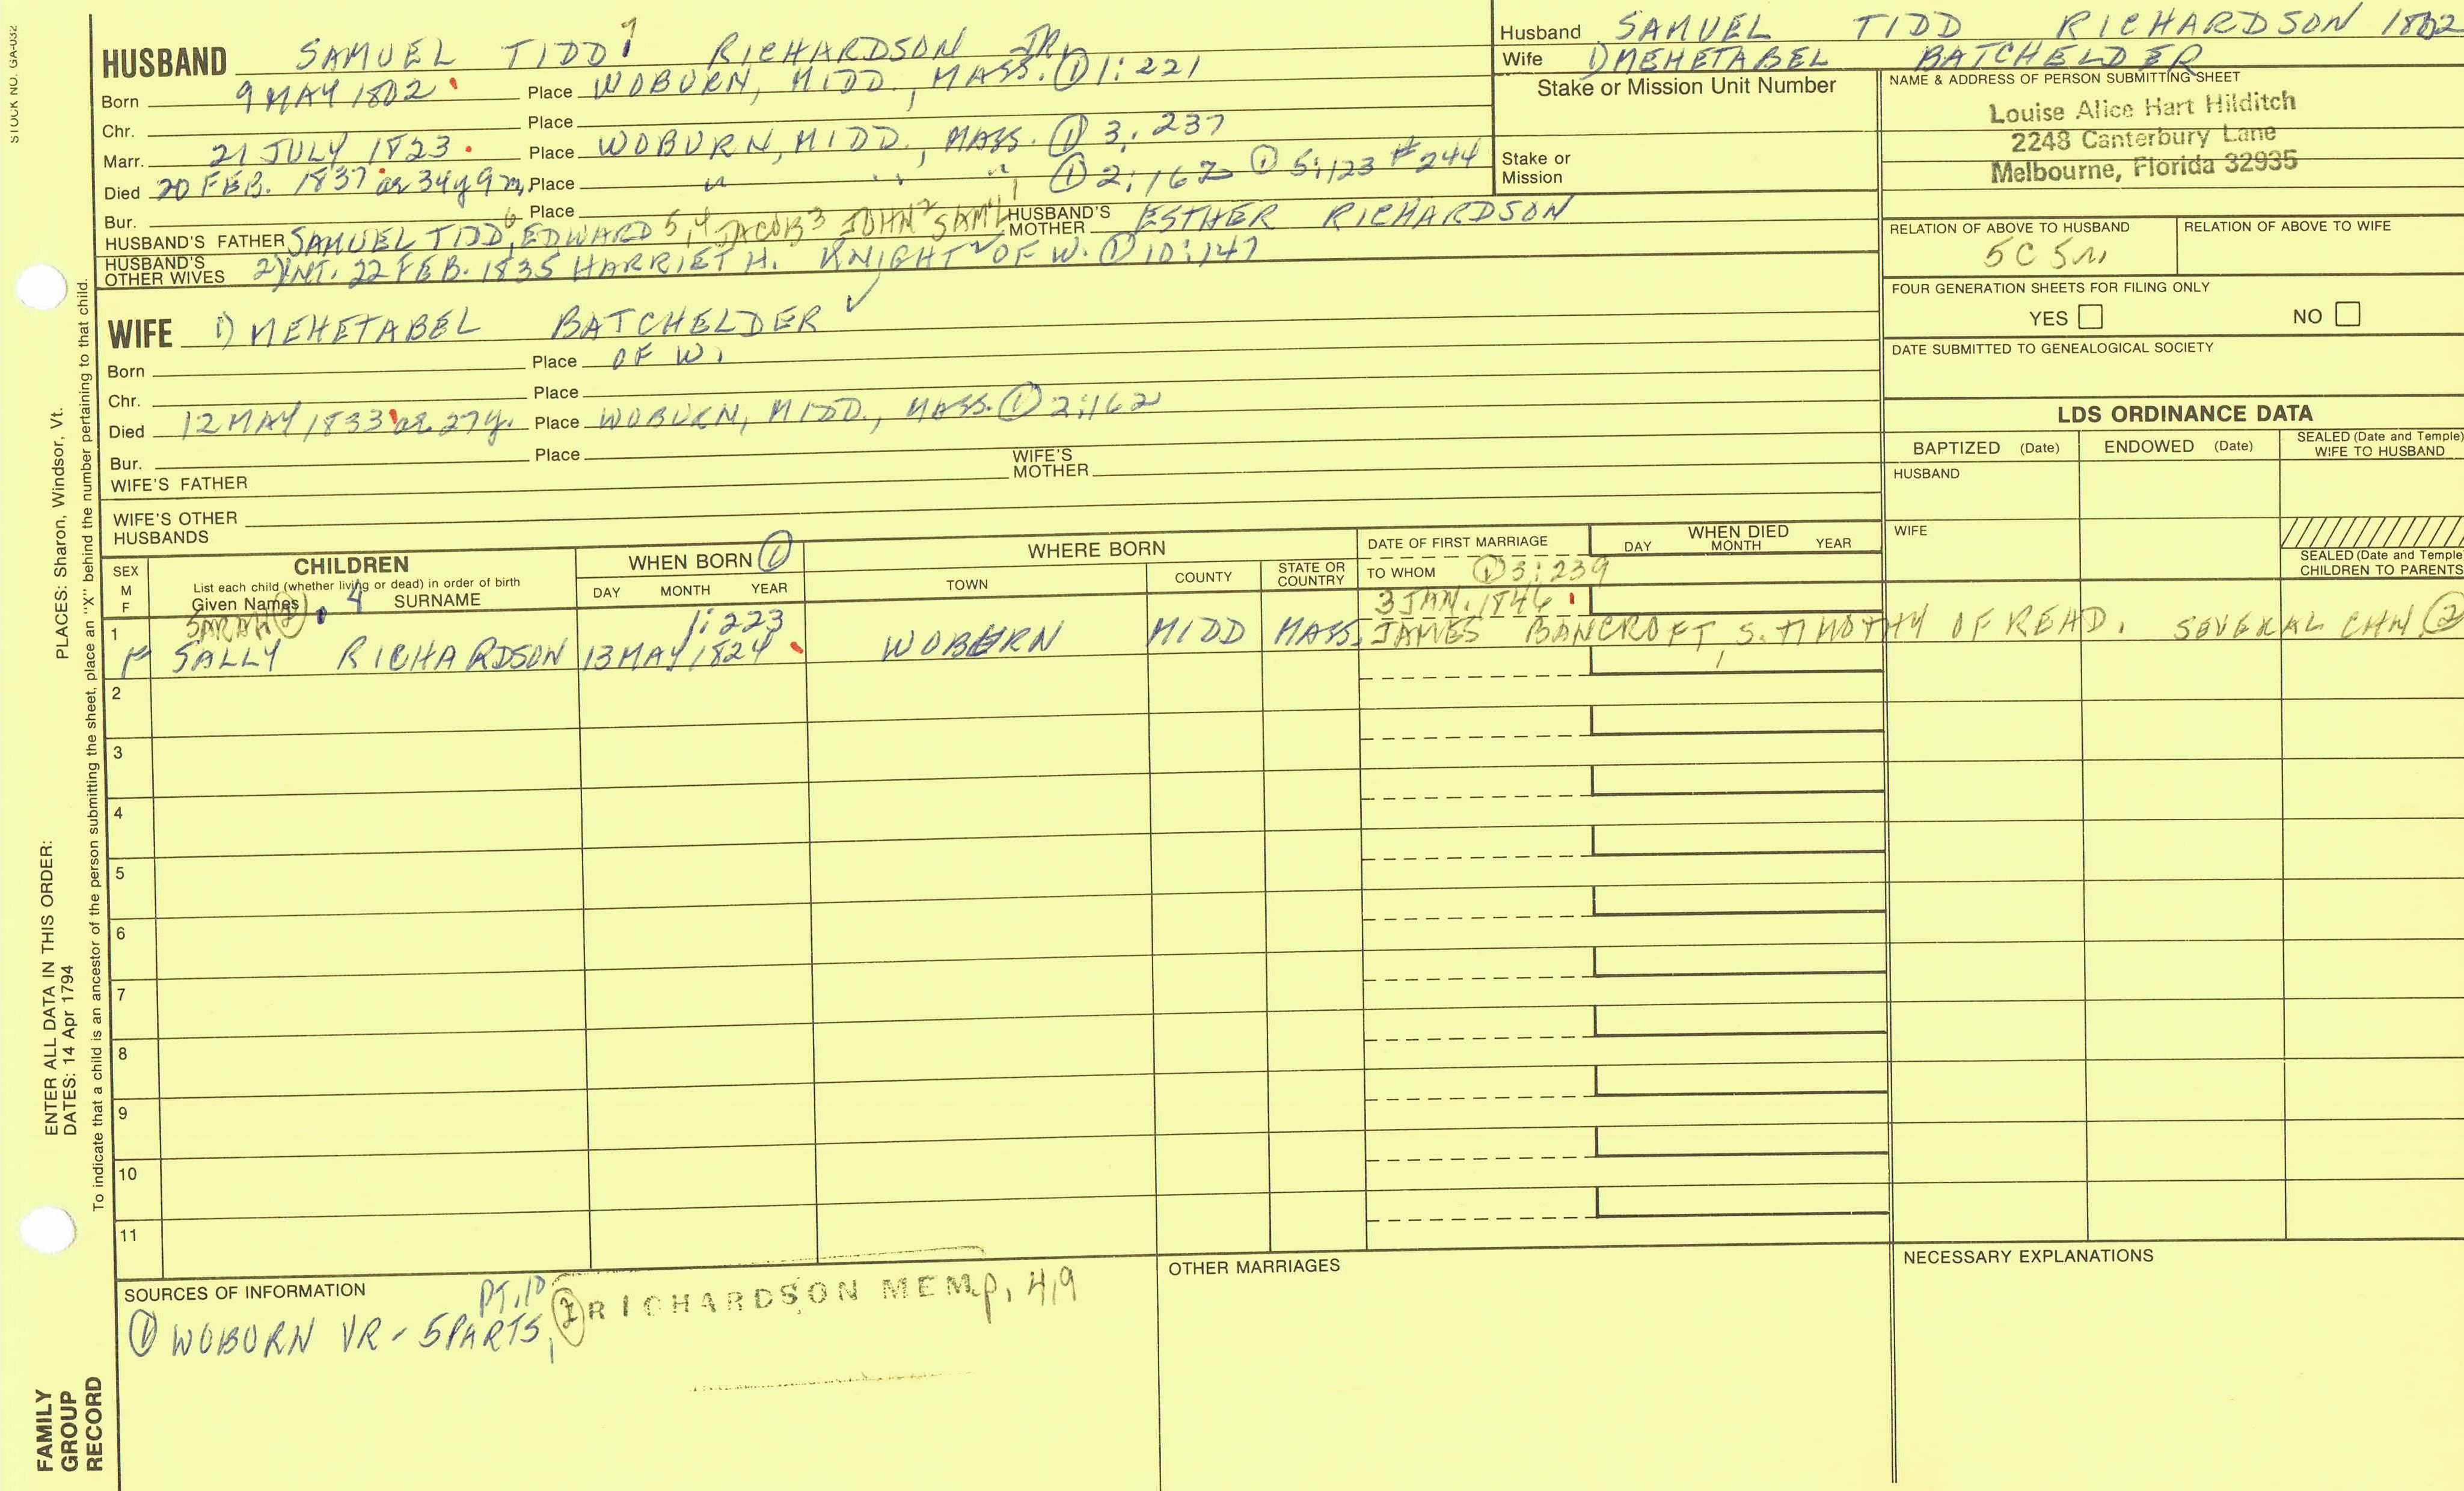 STOCK NO. GA-032
HUSBAND SAMUEL TIDD 7 RICHARDSON JR.
Born 9 MAY 1802 Place WOBURN, MIDD., MASS. ① 1:221
Chr. Place
Marr. 21 JULY 1823 Place WOBURN, MIDD., MASS. ① 3:237
Died 20 FEB. 1837 ae 34y 9m. Place " " " ① 2:162 ① 5:123 #244
Bur. Place
HUSBAND'S FATHER SAMUEL TIDD 6, EDWARD 5,4 JACOB 3 JOHN 2 SAM'L 1 HUSBAND'S MOTHER ESTHER RICHARDSON
HUSBAND'S OTHER WIVES 2) INT. 22 FEB. 1835 HARRIET H. KNIGHT OF W. ① 10:147
WIFE 1) MEHETABEL BATCHELDER ✓
Born Place OF W.
Chr. Place
Died 12 MAY 1833 ae 27y. Place WOBURN, MIDD., MASS. ① 2:162
Bur. Place
WIFE'S FATHER WIFE'S MOTHER
WIFE'S OTHER HUSBANDS
Husband SAMUEL TIDD RICHARDSON 1802
Wife 1) MEHETABEL BATCHELDER
Stake or Mission Unit Number
Stake or Mission
NAME & ADDRESS OF PERSON SUBMITTING SHEET
Louise Alice Hart Hilditch
2248 Canterbury Lane
Melbourne, Florida 32935
RELATION OF ABOVE TO HUSBAND RELATION OF ABOVE TO WIFE
5C 5r
FOUR GENERATION SHEETS FOR FILING ONLY
YES NO
DATE SUBMITTED TO GENEALOGICAL SOCIETY
LDS ORDINANCE DATA
BAPTIZED (Date) ENDOWED (Date) SEALED (Date and Temple) WIFE TO HUSBAND
HUSBAND
WIFE
SEALED (Date and Temple) CHILDREN TO PARENTS
SEX M F
CHILDREN
List each child (whether living or dead) in order of birth
Given Names SURNAME
WHEN BORN ①
DAY MONTH YEAR
WHERE BORN
TOWN COUNTY STATE OR COUNTRY
DATE OF FIRST MARRIAGE
TO WHOM ① 3:239
WHEN DIED
DAY MONTH YEAR
1 SARAH ② 4 1:223 3 JAN. 1846
F SALLY RICHARDSON 13 MAY 1824 WOBURN MIDD MASS. JAMES BANCROFT, S. TIMOTHY OF READ. SEVERAL CHN ②
2
3
4
5
6
7
8
9
10
11
SOURCES OF INFORMATION
① WOBURN VR - 5 PARTS, PT. 10 ② RICHARDSON MEM p. 419
OTHER MARRIAGES
NECESSARY EXPLANATIONS
PLACES: Sharon, Windsor, Vt.
ENTER ALL DATA IN THIS ORDER:
DATES: 14 Apr 1794
To indicate that a child is an ancestor of the person submitting the sheet, place an "X" behind the number pertaining to that child.
FAMILY
GROUP
RECORD